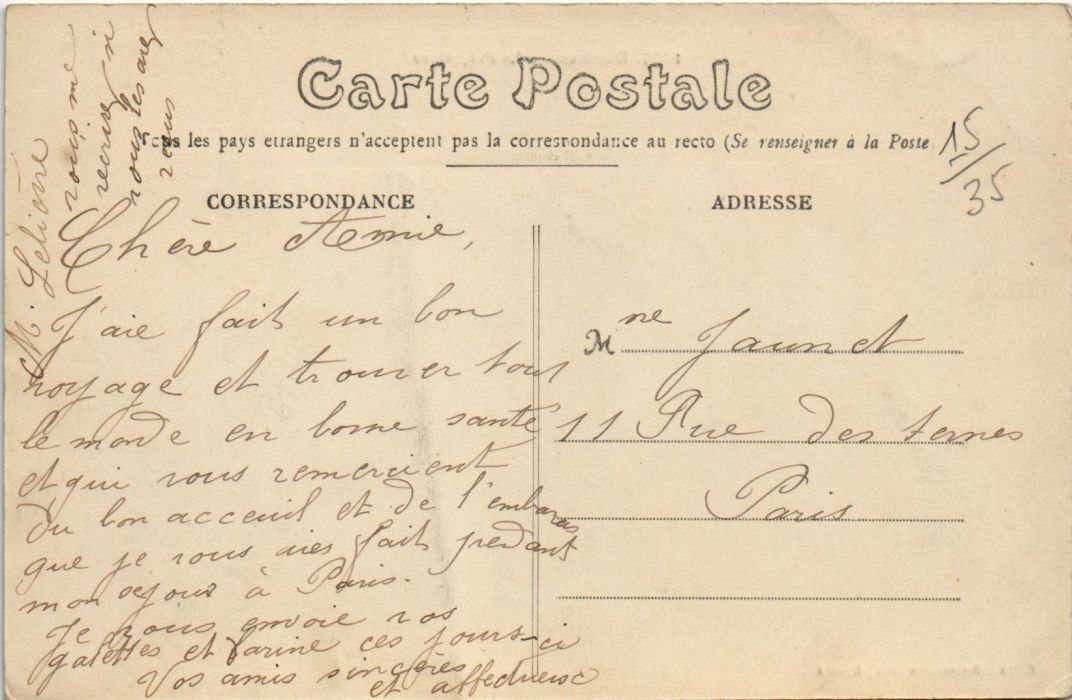 Carte Postale
Tous les pays etrangers n'acceptent pas la correspondance au recto (Se renseigner à la Poste
15/35
CORRESPONDANCE
Chère Amie,
J'aie fait un bon
voyage et trouver tout
le monde en bonne santé
et qui vous remercient
du bon acceuil et de l'embaras
que je vous aies fait pendant
mon séjour à Paris.
Je vous envoie vos
galettes et farine ces jours-ci
Vos amis sincères
et affectueux
vous me
récrirez si
vous les avez
reçus
ADRESSE
Mme Jaunet
11 Rue des ternes
Paris